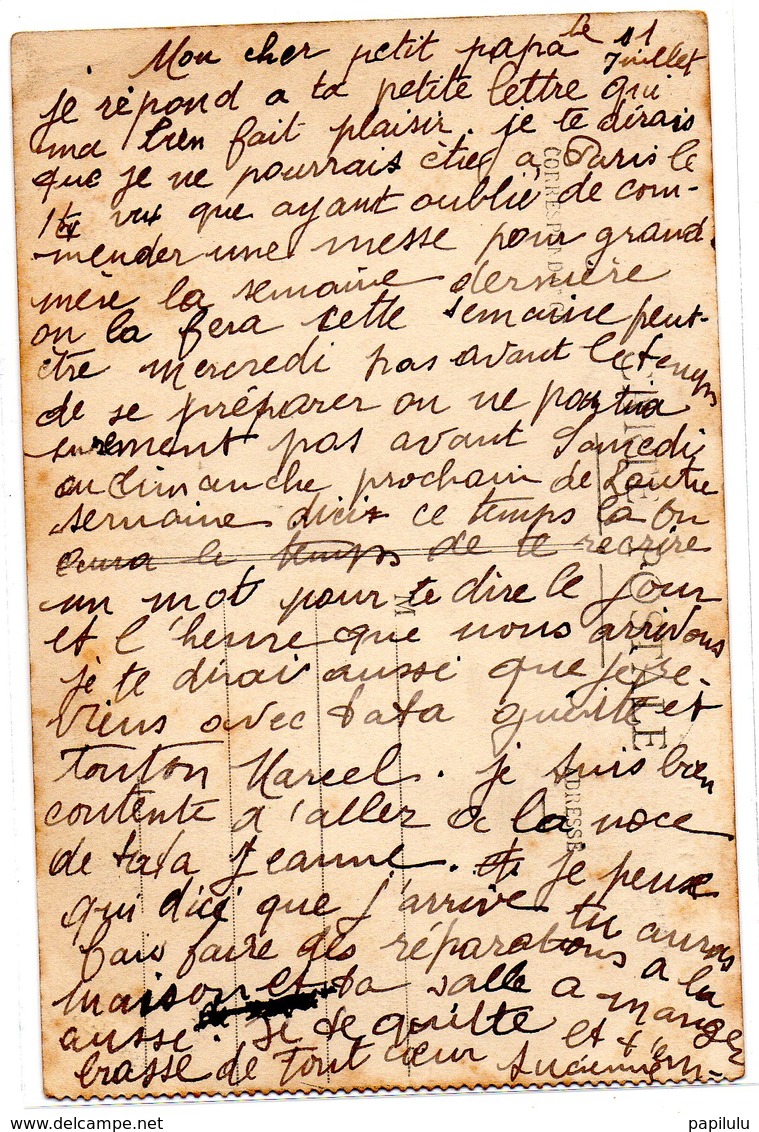 le 11
Mon cher petit papa Juillet
je répond a ta petite lettre qui
ma bien fait plaisir. je te dirais
que je ne pourrais être a Paris le
14 vu que ayant oublié de com-
mender une messe pour grand-
mère la semaine dernière
on la fera cette semaine peut-
être mercredi pas avant le temps
de se préparer on ne partira
surement pas avant Samedi
ou dimanche prochain de l'autre
semaine dici ce temps la on
aura le temps de te recrire
un mot pour te dire le jour
et l'heure que nous arrivons
je te dirai aussi que je re-
viens avec tata guitte et
tonton Marcel. je suis bien
contente d'aller a la noce
de tata Jeanne. je pense
qui dici que j'arrive tu auras
faire des réparations a la
maison et ta salle a manger
aussi. Je te quitte et t'em-
brasse de tout cœur
CORRESPONDANCE
CARTE POSTALE
M
ADRESSE
papilulu
delcampe.net